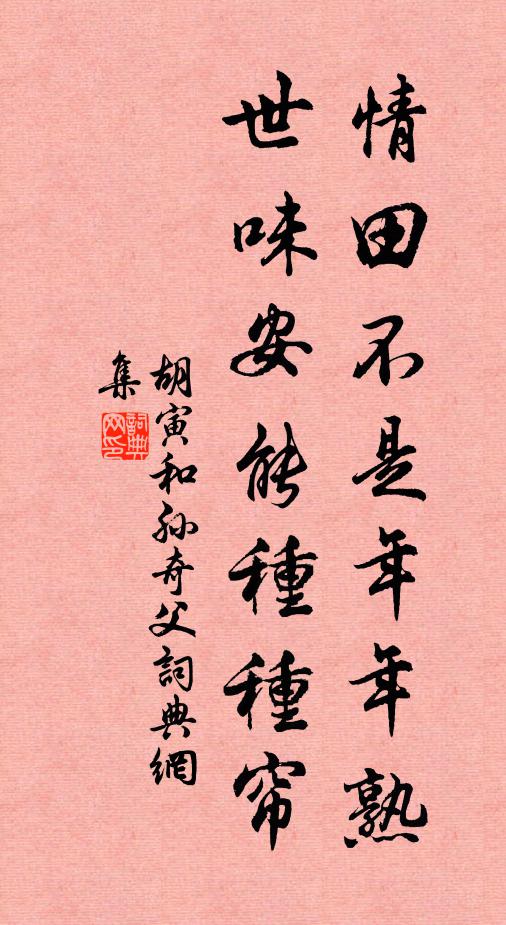 情田不是年年熟
世味安能種種帘
胡寅和孫奇父詞典網
集
詞典
网印